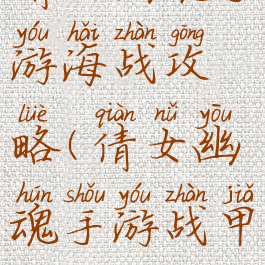 yóu hǎi zhàn gōng
游海战攻
lüè qiàn nǚ yōu
略(倩女幽
hún shǒu yóu zhàn jiǎ
魂手游战甲